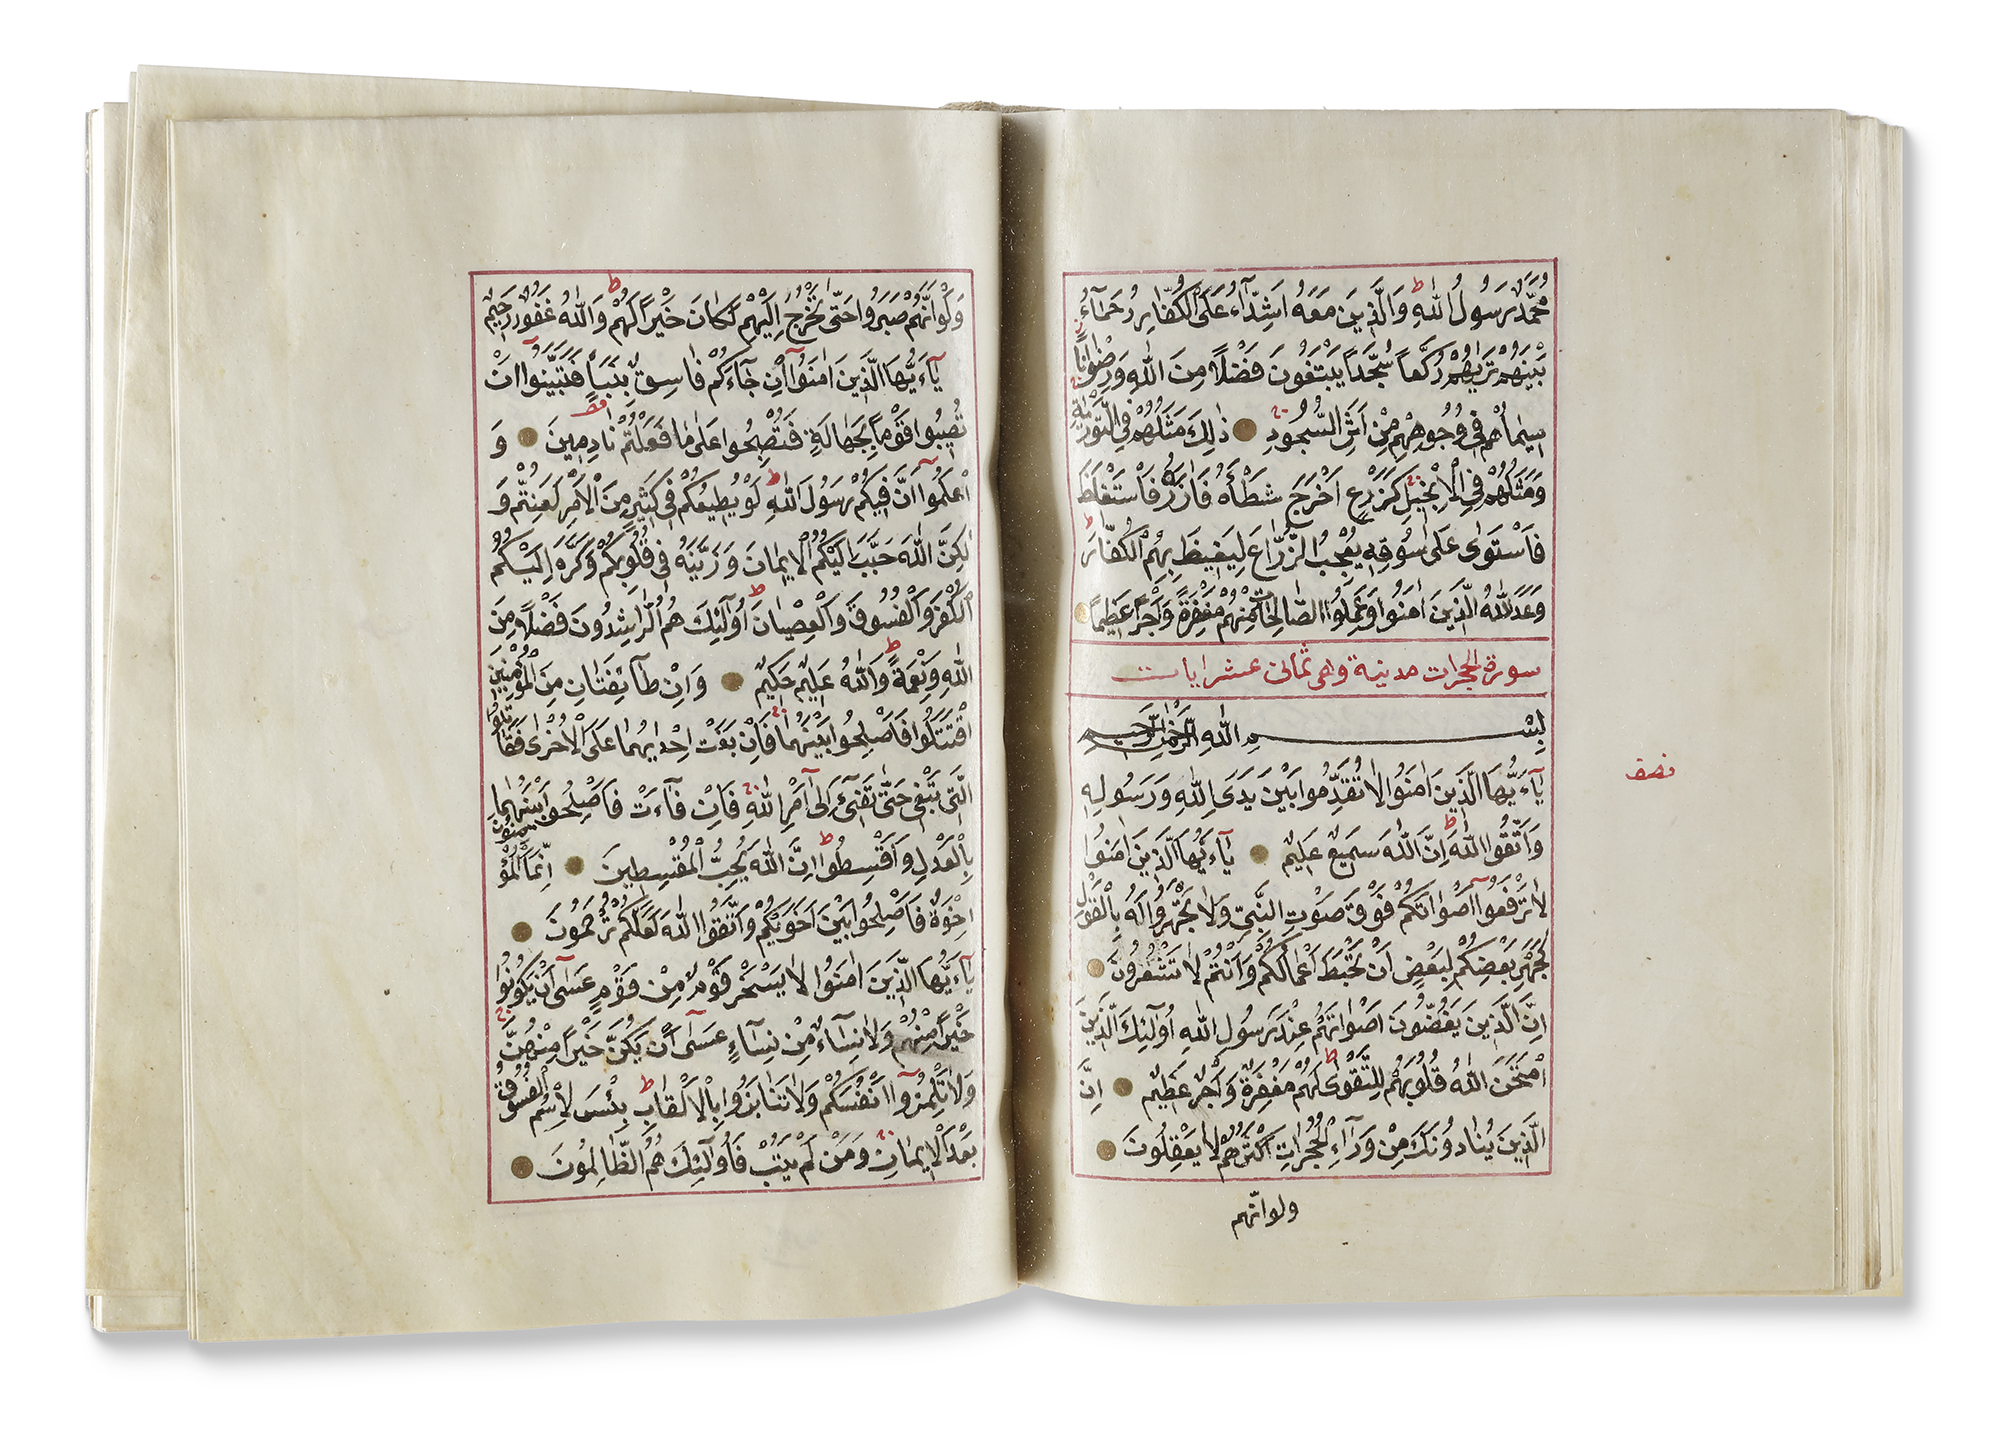 مُحَمَّدٌ رَسُولُ اللّٰهِ وَالَّذِينَ مَعَهُ اَشِدَّاءُ عَلَى الْكُفَّارِ رُحَمَاءُ
بَيْنَهُمْ تَرٰيهُمْ رُكَّعًا سُجَّدًا يَبْتَغُونَ فَضْلًا مِنَ اللّٰهِ وَرِضْوَانًا
سِيمَاهُمْ فِي وُجُوهِهِمْ مِنْ اَثَرِ السُّجُودِ ذٰلِكَ مَثَلُهُمْ فِي التَّوْرٰيةِ
وَمَثَلُهُمْ فِي الْاِنْجِيلِ كَزَرْعٍ اَخْرَجَ شَطْأَهُ فَاٰزَرَهُ فَاسْتَغْلَظَ
فَاسْتَوٰى عَلٰى سُوقِهِ يُعْجِبُ الزُّرَّاعَ لِيَغِيظَ بِهِمُ الْكُفَّارَ
وَعَدَ اللّٰهُ الَّذِينَ اٰمَنُوا وَعَمِلُوا الصَّالِحَاتِ مِنْهُمْ مَغْفِرَةً وَاَجْرًا عَظِيمًا
سورة الحجرات مدنية وهى ثمانى عشر ايات
بِسْمِ اللّٰهِ الرَّحْمٰنِ الرَّحِيمِ
يَآءَيُّهَا الَّذِينَ اٰمَنُوا لَا تُقَدِّمُوا بَيْنَ يَدَىِ اللّٰهِ وَرَسُولِهِ
وَاتَّقُوا اللّٰهَ اِنَّ اللّٰهَ سَمِيعٌ عَلِيمٌ يَآءَيُّهَا الَّذِينَ اٰمَنُوا
لَا تَرْفَعُوا اَصْوَاتَكُمْ فَوْقَ صَوْتِ النَّبِيِّ وَلَا تَجْهَرُوا لَهُ بِالْقَوْلِ
كَجَهْرِ بَعْضِكُمْ لِبَعْضٍ اَنْ تَحْبَطَ اَعْمَالُكُمْ وَاَنْتُمْ لَا تَشْعُرُونَ
اِنَّ الَّذِينَ يَغُضُّونَ اَصْوَاتَهُمْ عِنْدَ رَسُولِ اللّٰهِ اُولٰئِكَ الَّذِينَ
امْتَحَنَ اللّٰهُ قُلُوبَهُمْ لِلتَّقْوٰى لَهُمْ مَغْفِرَةٌ وَاَجْرٌ عَظِيمٌ اِنَّ
الَّذِينَ يُنَادُونَكَ مِنْ وَرَآءِ الْحُجُرَاتِ اَكْثَرُهُمْ لَا يَعْقِلُونَ
ولو انهم
نصف
وَلَوْ اَنَّهُمْ صَبَرُوا حَتّٰى تَخْرُجَ اِلَيْهِمْ لَكَانَ خَيْرًا لَهُمْ وَاللّٰهُ غَفُورٌ رَحِيمٌ
يَآءَيُّهَا الَّذِينَ اٰمَنُوا اِنْ جَآءَكُمْ فَاسِقٌ بِنَبَأٍ فَتَبَيَّنُوا اَنْ
تُصِيبُوا قَوْمًا بِجَهَالَةٍ فَتُصْبِحُوا عَلٰى مَا فَعَلْتُمْ نَادِمِينَ وَ
اعْلَمُوا اَنَّ فِيكُمْ رَسُولَ اللّٰهِ لَوْ يُطِيعُكُمْ فِي كَثِيرٍ مِنَ الْاَمْرِ لَعَنِتُّمْ وَ
لٰكِنَّ اللّٰهَ حَبَّبَ اِلَيْكُمُ الْاِيمَانَ وَزَيَّنَهُ فِي قُلُوبِكُمْ وَكَرَّهَ اِلَيْكُمُ
الْكُفْرَ وَالْفُسُوقَ وَالْعِصْيَانَ اُولٰئِكَ هُمُ الرَّاشِدُونَ فَضْلًا مِنَ
اللّٰهِ وَنِعْمَةً وَاللّٰهُ عَلِيمٌ حَكِيمٌ وَاِنْ طَآئِفَتَانِ مِنَ الْمُؤْمِنِينَ
اقْتَتَلُوا فَاَصْلِحُوا بَيْنَهُمَا فَاِنْ بَغَتْ اِحْدٰيهُمَا عَلَى الْاُخْرٰى فَقَاتِلُوا
الَّتِي تَبْغِي حَتّٰى تَفِيءَ اِلٰى اَمْرِ اللّٰهِ فَاِنْ فَآءَتْ فَاَصْلِحُوا بَيْنَهُمَا
بِالْعَدْلِ وَاَقْسِطُوا اِنَّ اللّٰهَ يُحِبُّ الْمُقْسِطِينَ اِنَّمَا الْمُؤْمِنُونَ
اِخْوَةٌ فَاَصْلِحُوا بَيْنَ اَخَوَيْكُمْ وَاتَّقُوا اللّٰهَ لَعَلَّكُمْ تُرْحَمُونَ
يَآءَيُّهَا الَّذِينَ اٰمَنُوا لَا يَسْخَرْ قَوْمٌ مِنْ قَوْمٍ عَسٰى اَنْ يَكُونُوا
خَيْرًا مِنْهُمْ وَلَا نِسَآءٌ مِنْ نِسَآءٍ عَسٰى اَنْ يَكُنَّ خَيْرًا مِنْهُنَّ
وَلَا تَلْمِزُوا اَنْفُسَكُمْ وَلَا تَنَابَزُوا بِالْاَلْقَابِ بِئْسَ الِاسْمُ الْفُسُوقُ
بَعْدَ الْاِيمَانِ وَمَنْ لَمْ يَتُبْ فَاُولٰئِكَ هُمُ الظَّالِمُونَ